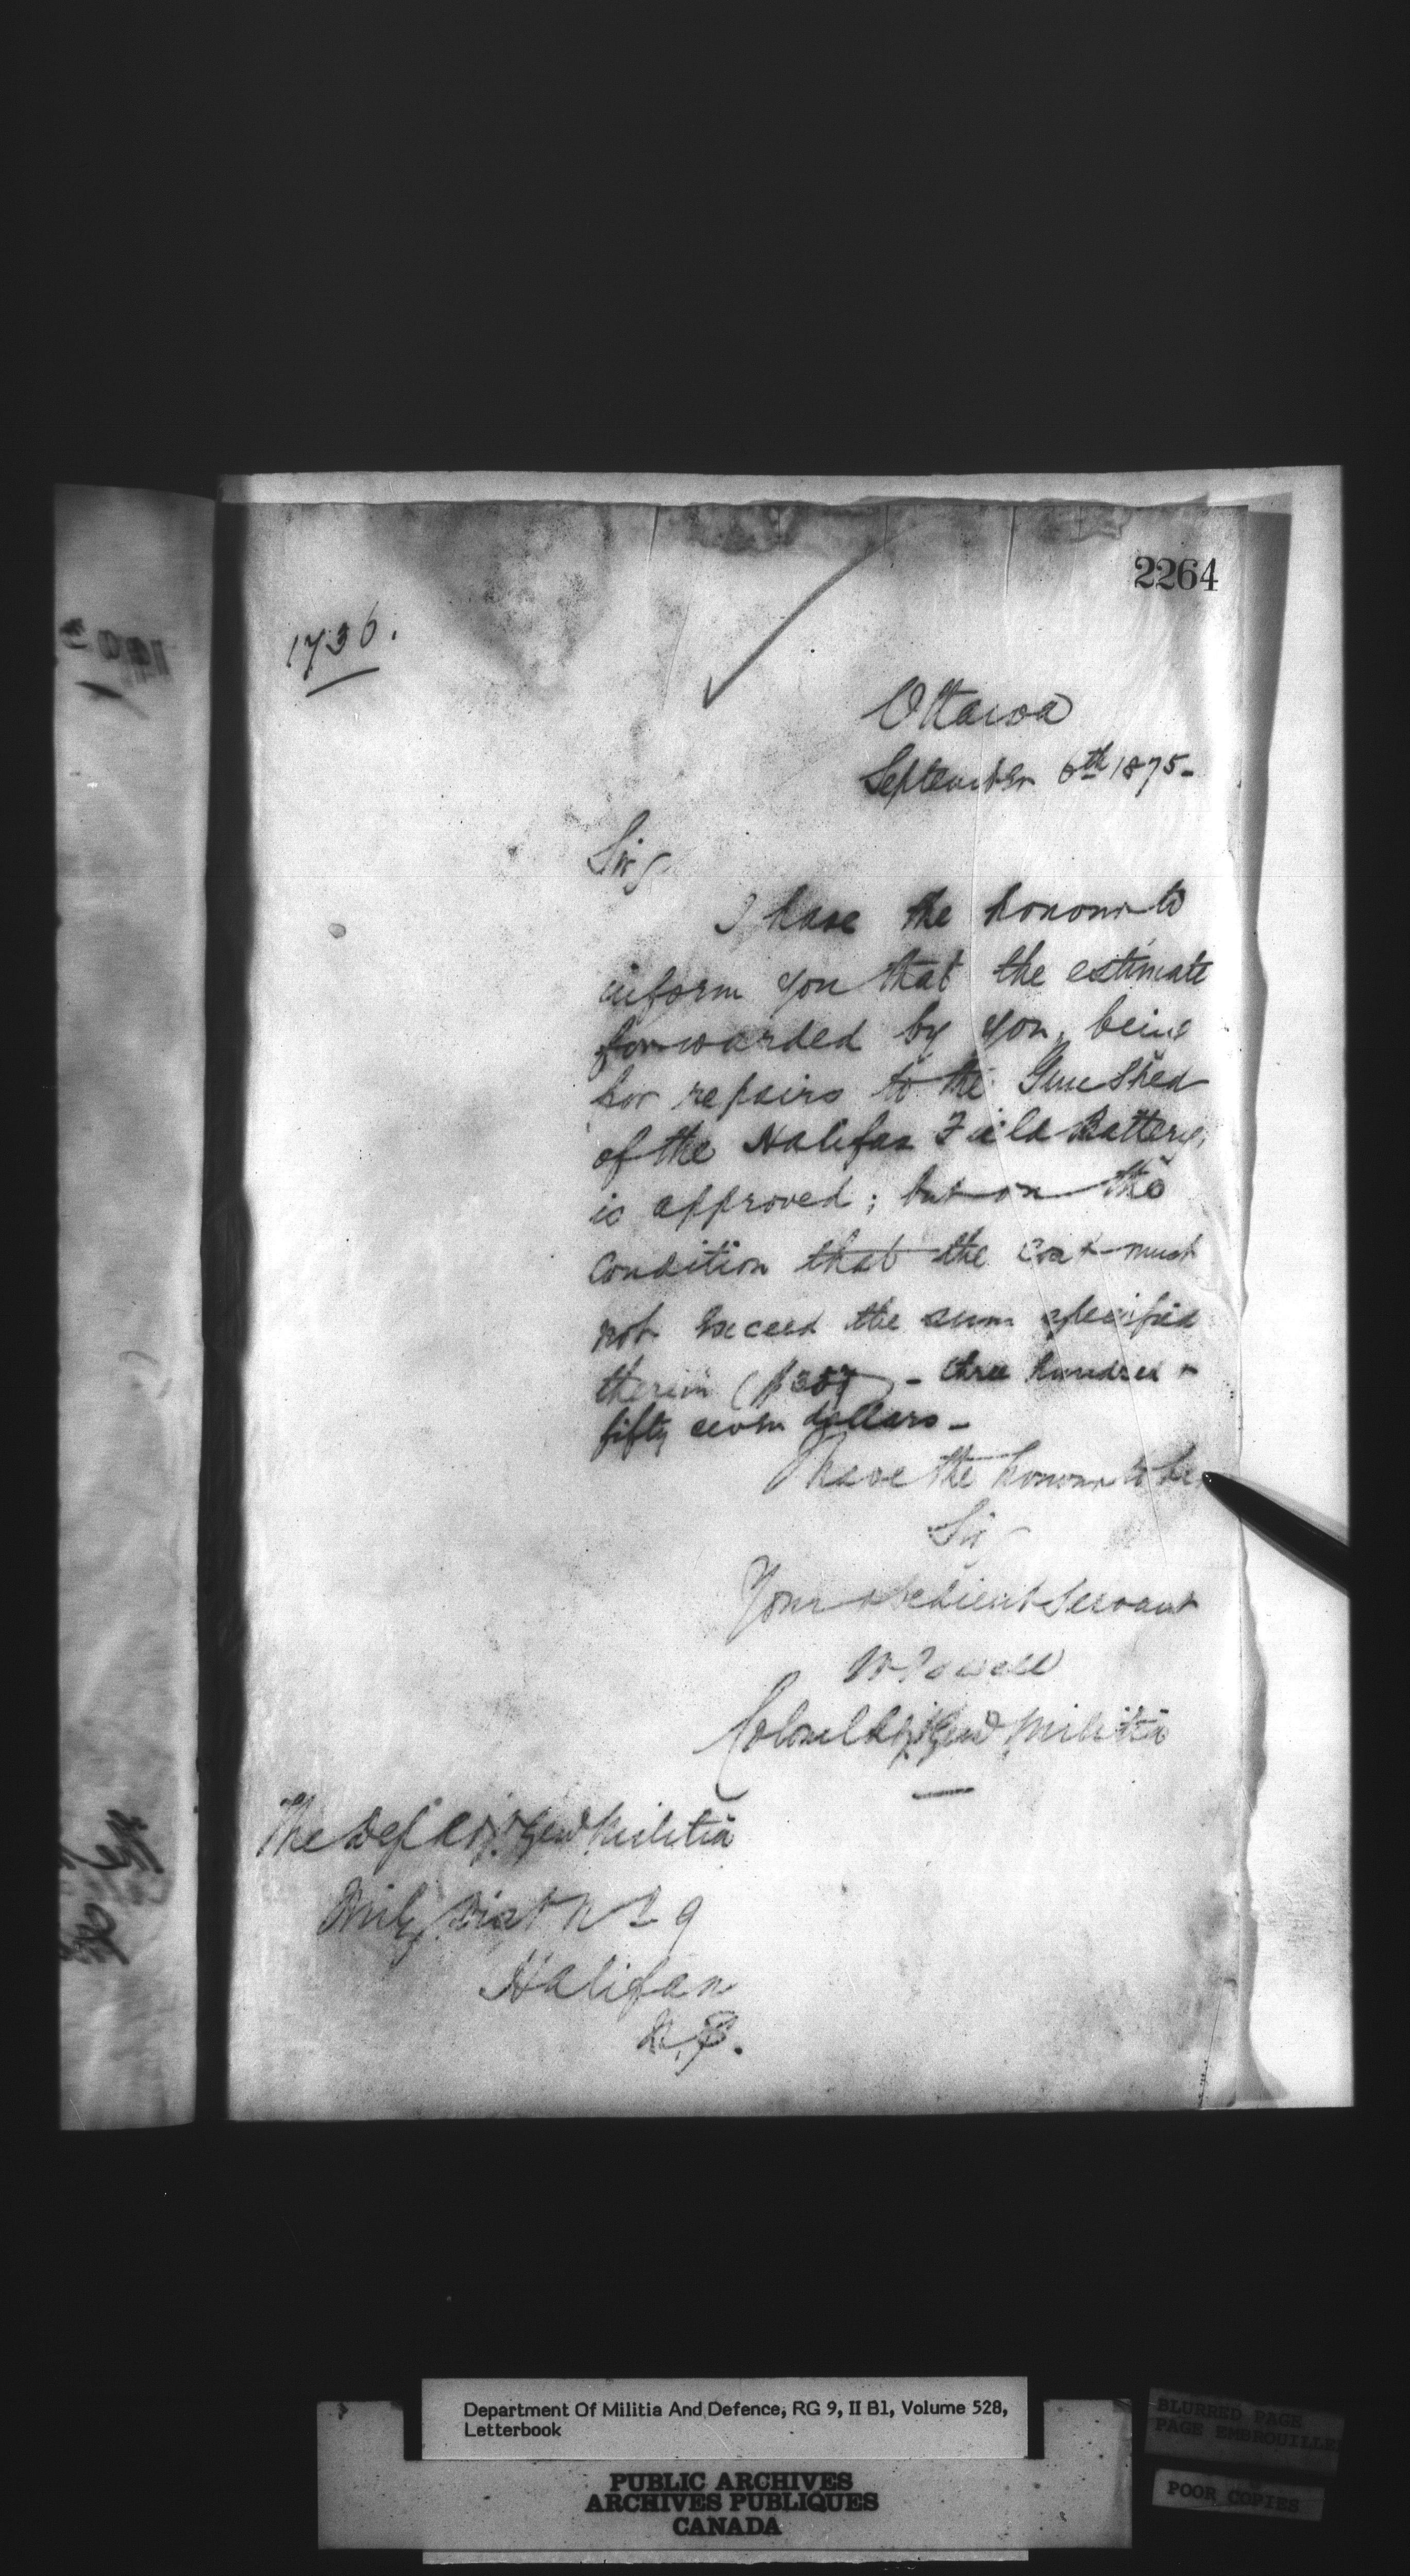 2264
1736.
Ottawa
September 6th 1875-
Sir,
I have the honour to
inform you that the estimate
forwarded by you, being
for repairs to the Gun Shed
of the Halifax Field Battery,
is approved; but on the
condition that the cost must
not exceed the sum specified
therein ($357) - three hundred &
fifty seven dollars -
I have the honour to be,
Sir,
Your obedient Servant
W Powell
Colonel Adjt Genl Militia
The Dep Adjt Genl Militia
Mily Dist No 9
Halifax
N.S.
Department Of Militia And Defence, RG 9, II B1, Volume 528,
Letterbook
PUBLIC ARCHIVES
ARCHIVES PUBLIQUES
CANADA
BLURRED PAGE
PAGE EMBROUILLE
POOR COPIES